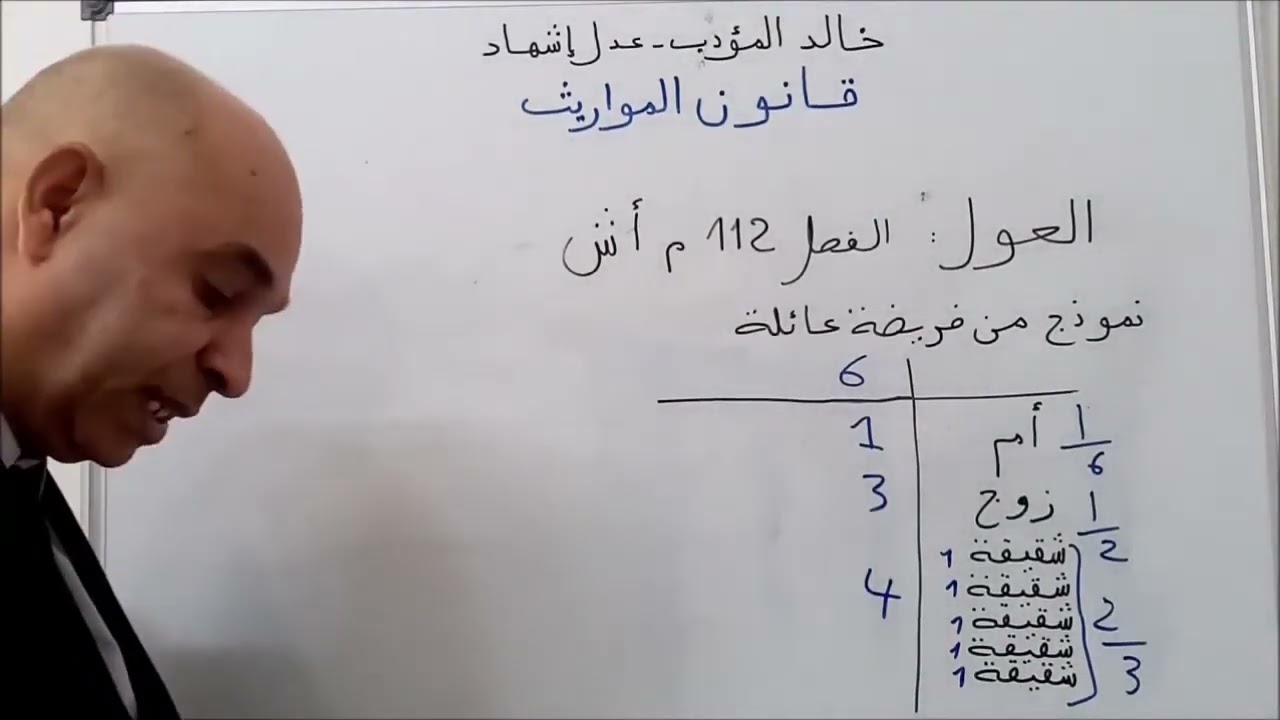 خالد المؤدب - عدل إشهاد
قانون المواريث
العول : الفصل 112 م أ ش
نموذج من فريضة عائلة
6
1/6 أم 1
1/2 زوج 3
شقيقة 1
شقيقة 1
2/3 شقيقة 1 4
شقيقة 1
شقيقة 1